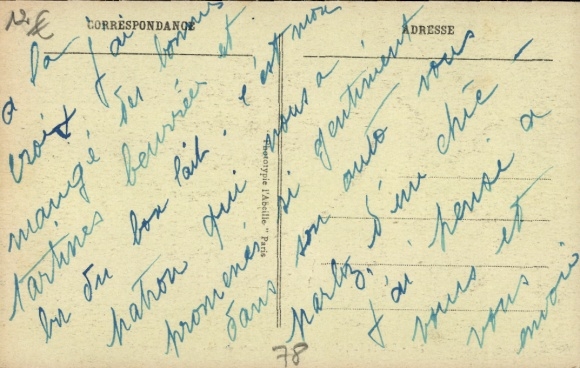 12 €
CORRESPONDANCE
ADRESSE
a la
croix j'ai
mangé des bonnes
tartines beurrées et
bu du bon lait. c'est mon
patron qui nous a
promenés si gentiment
dans son auto vous
parlez d'un chic -
J'ai pensé a
vous et
vous
envoie
"Phototypie l'Abeille" Paris
78